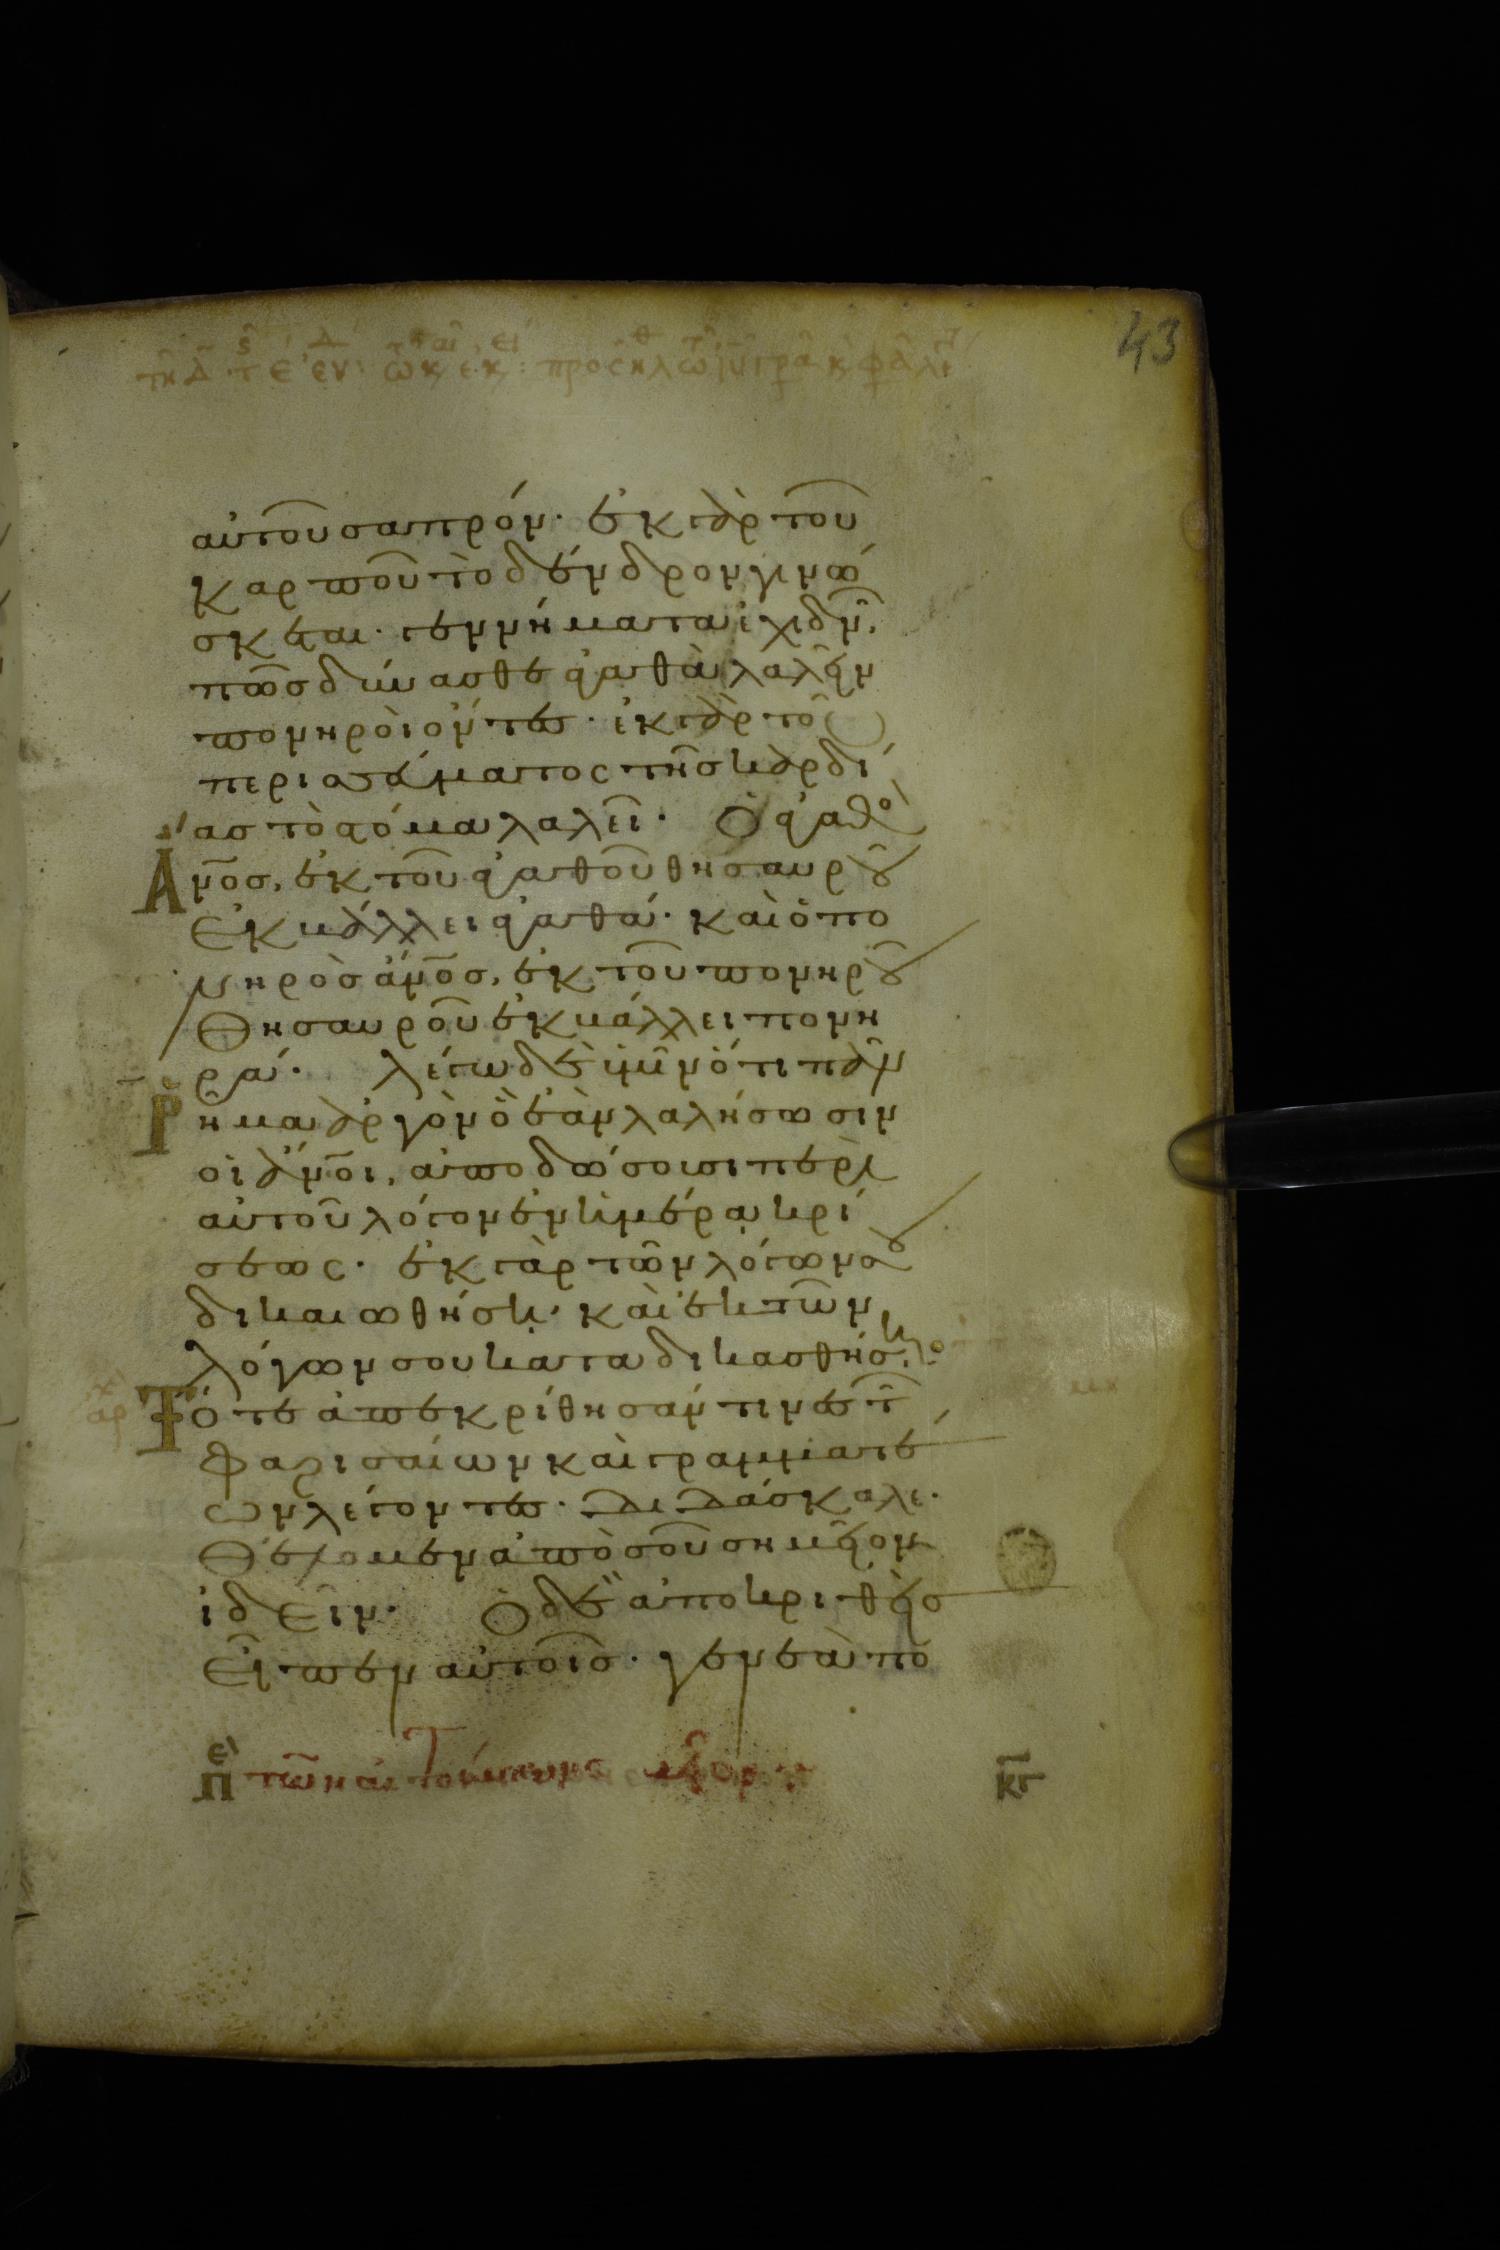 43
αὐτοῦ σαπρόν· ἐκ γὰρ τοῦ
καρποῦ τὸ δένδρον γινώ
σκεται· γεννήματα ἐχιδνῶν,
πῶς δύνασθε ἀγαθὰ λαλεῖν
πονηροὶ ὄντες· ἐκ γὰρ τοῦ
περισσεύματος τῆς καρδί
ας τὸ στόμα λαλεῖ· Ὁ ἀγαθὸς
ἄνος, ἐκ τοῦ ἀγαθοῦ θησαυροῦ
ἐκβάλλει ἀγαθά· καὶ ὁ πο
νηρὸς ἄνος, ἐκ τοῦ πονηροῦ
θησαυροῦ ἐκβάλλει πονη
ρά· λέγω δὲ ὑμῖν ὅτι πᾶν
ῥῆμα ἀργὸν ὃ ἐὰν λαλήσωσιν
οἱ ἄνοι, ἀποδώσουσι περὶ
αὐτοῦ λόγον ἐν ἡμέρᾳ κρί
σεως· ἐκ γὰρ τῶν λόγων σου
δικαιωθήσῃ· καὶ ἐκ τῶν
λόγων σου καταδικασθήσῃ·
Τότε ἀπεκρίθησάν τινες τῶν
φαρισαίων καὶ γραμματέ
ων λέγοντες· διδάσκαλε·
θέλομεν ἀπὸ σοῦ σημεῖον
ἰδεῖν· Ὁ δὲ ἀποκριθεὶς
εἶπεν αὐτοῖς· γενεὰ πο